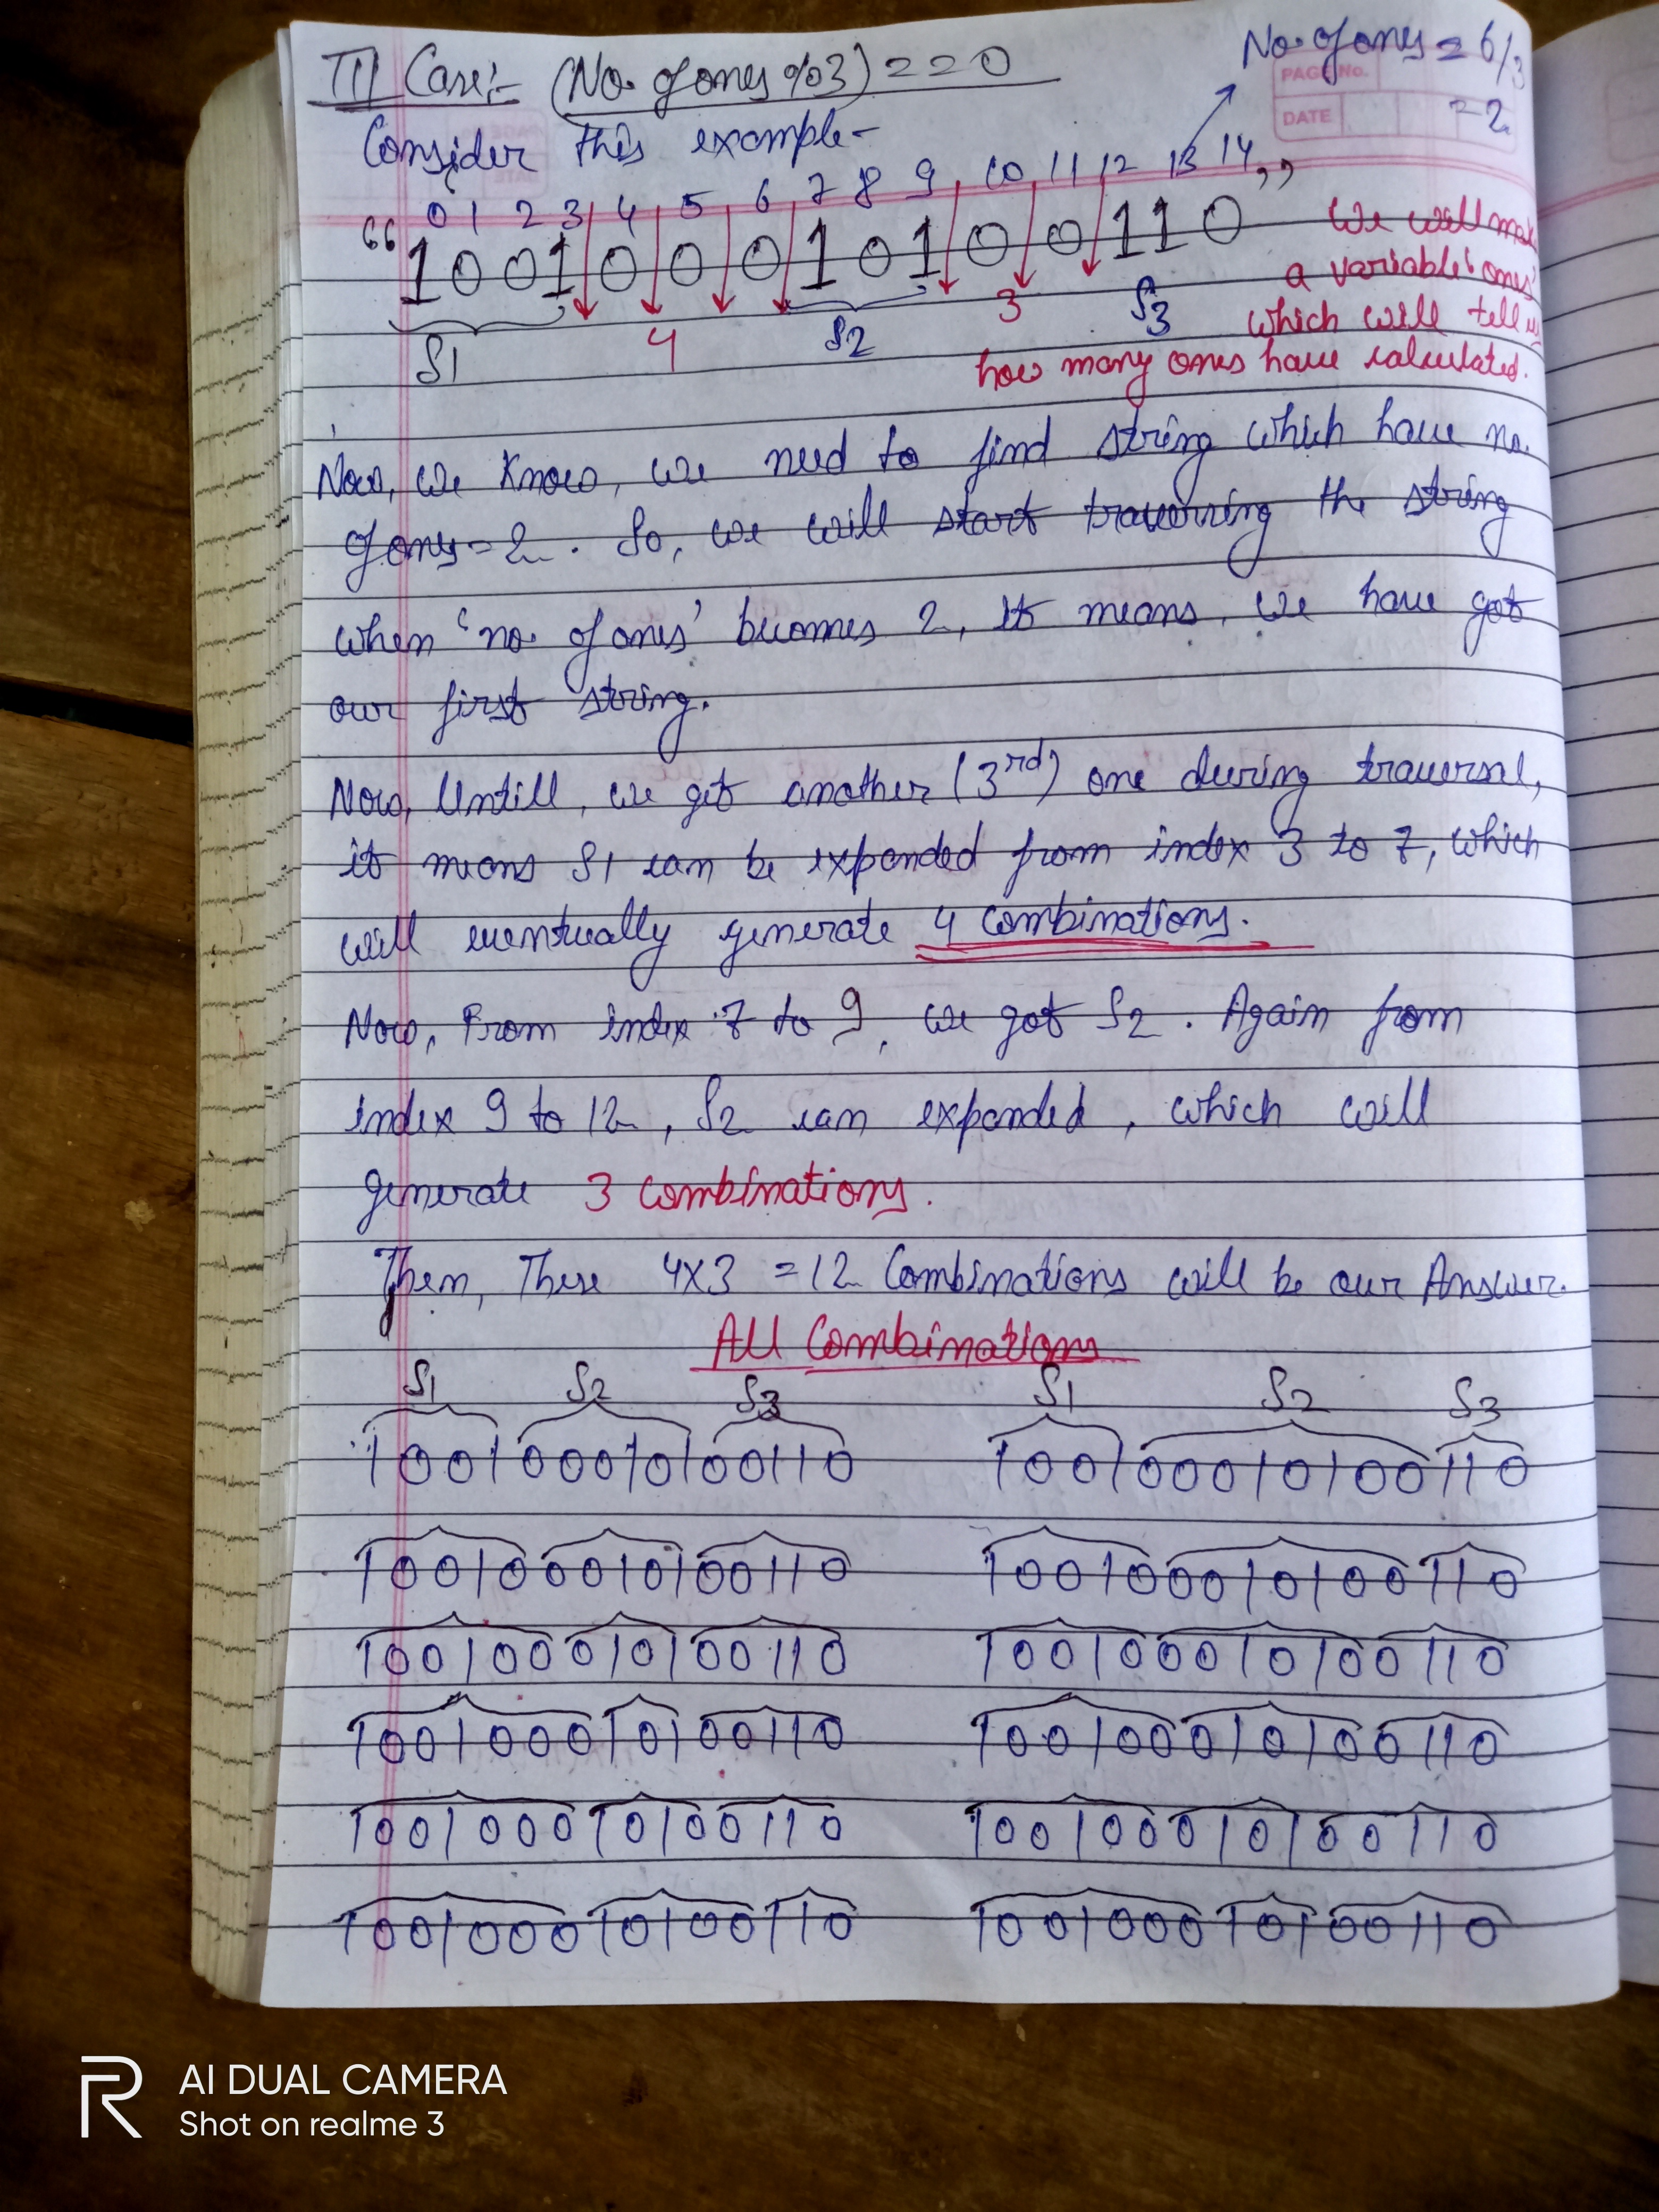 III Case:- (No. of ones %3) == 0
No. of ones = 6/3
= 2
PAGE No.
DATE
Consider this example-
0 1 2 3 4 5 6 7 8 9 10 11 12 13 14
“100100010100110”
S1 4 S2 3 S3
We will make
a variable 'ones'
which will tell us
how many ones have calculated.
Now, we know, we need to find string which have no.
of ones = 2. So, we will start traversing the string
when 'no. of ones' becomes 2, It means, we have got
our first string.
Now, Untill, we get another (3rd) one during traversal,
it means S1 can be expanded from index 3 to 7, which
will eventually generate 4 combinations.
Now, From index 7 to 9, we got S2. Again from
index 9 to 12, S2 can expanded, which will
generate 3 combinations.
Then, These 4x3 = 12 Combinations will be our Answer.
All Combinations
S1 S2 S3 S1 S2 S3
100100010100110 100100010100110
100100010100110 100100010100110
100100010100110 100100010100110
100100010100110 100100010100110
100100010100110 100100010100110
100100010100110 100100010100110
R AI DUAL CAMERA
Shot on realme 3